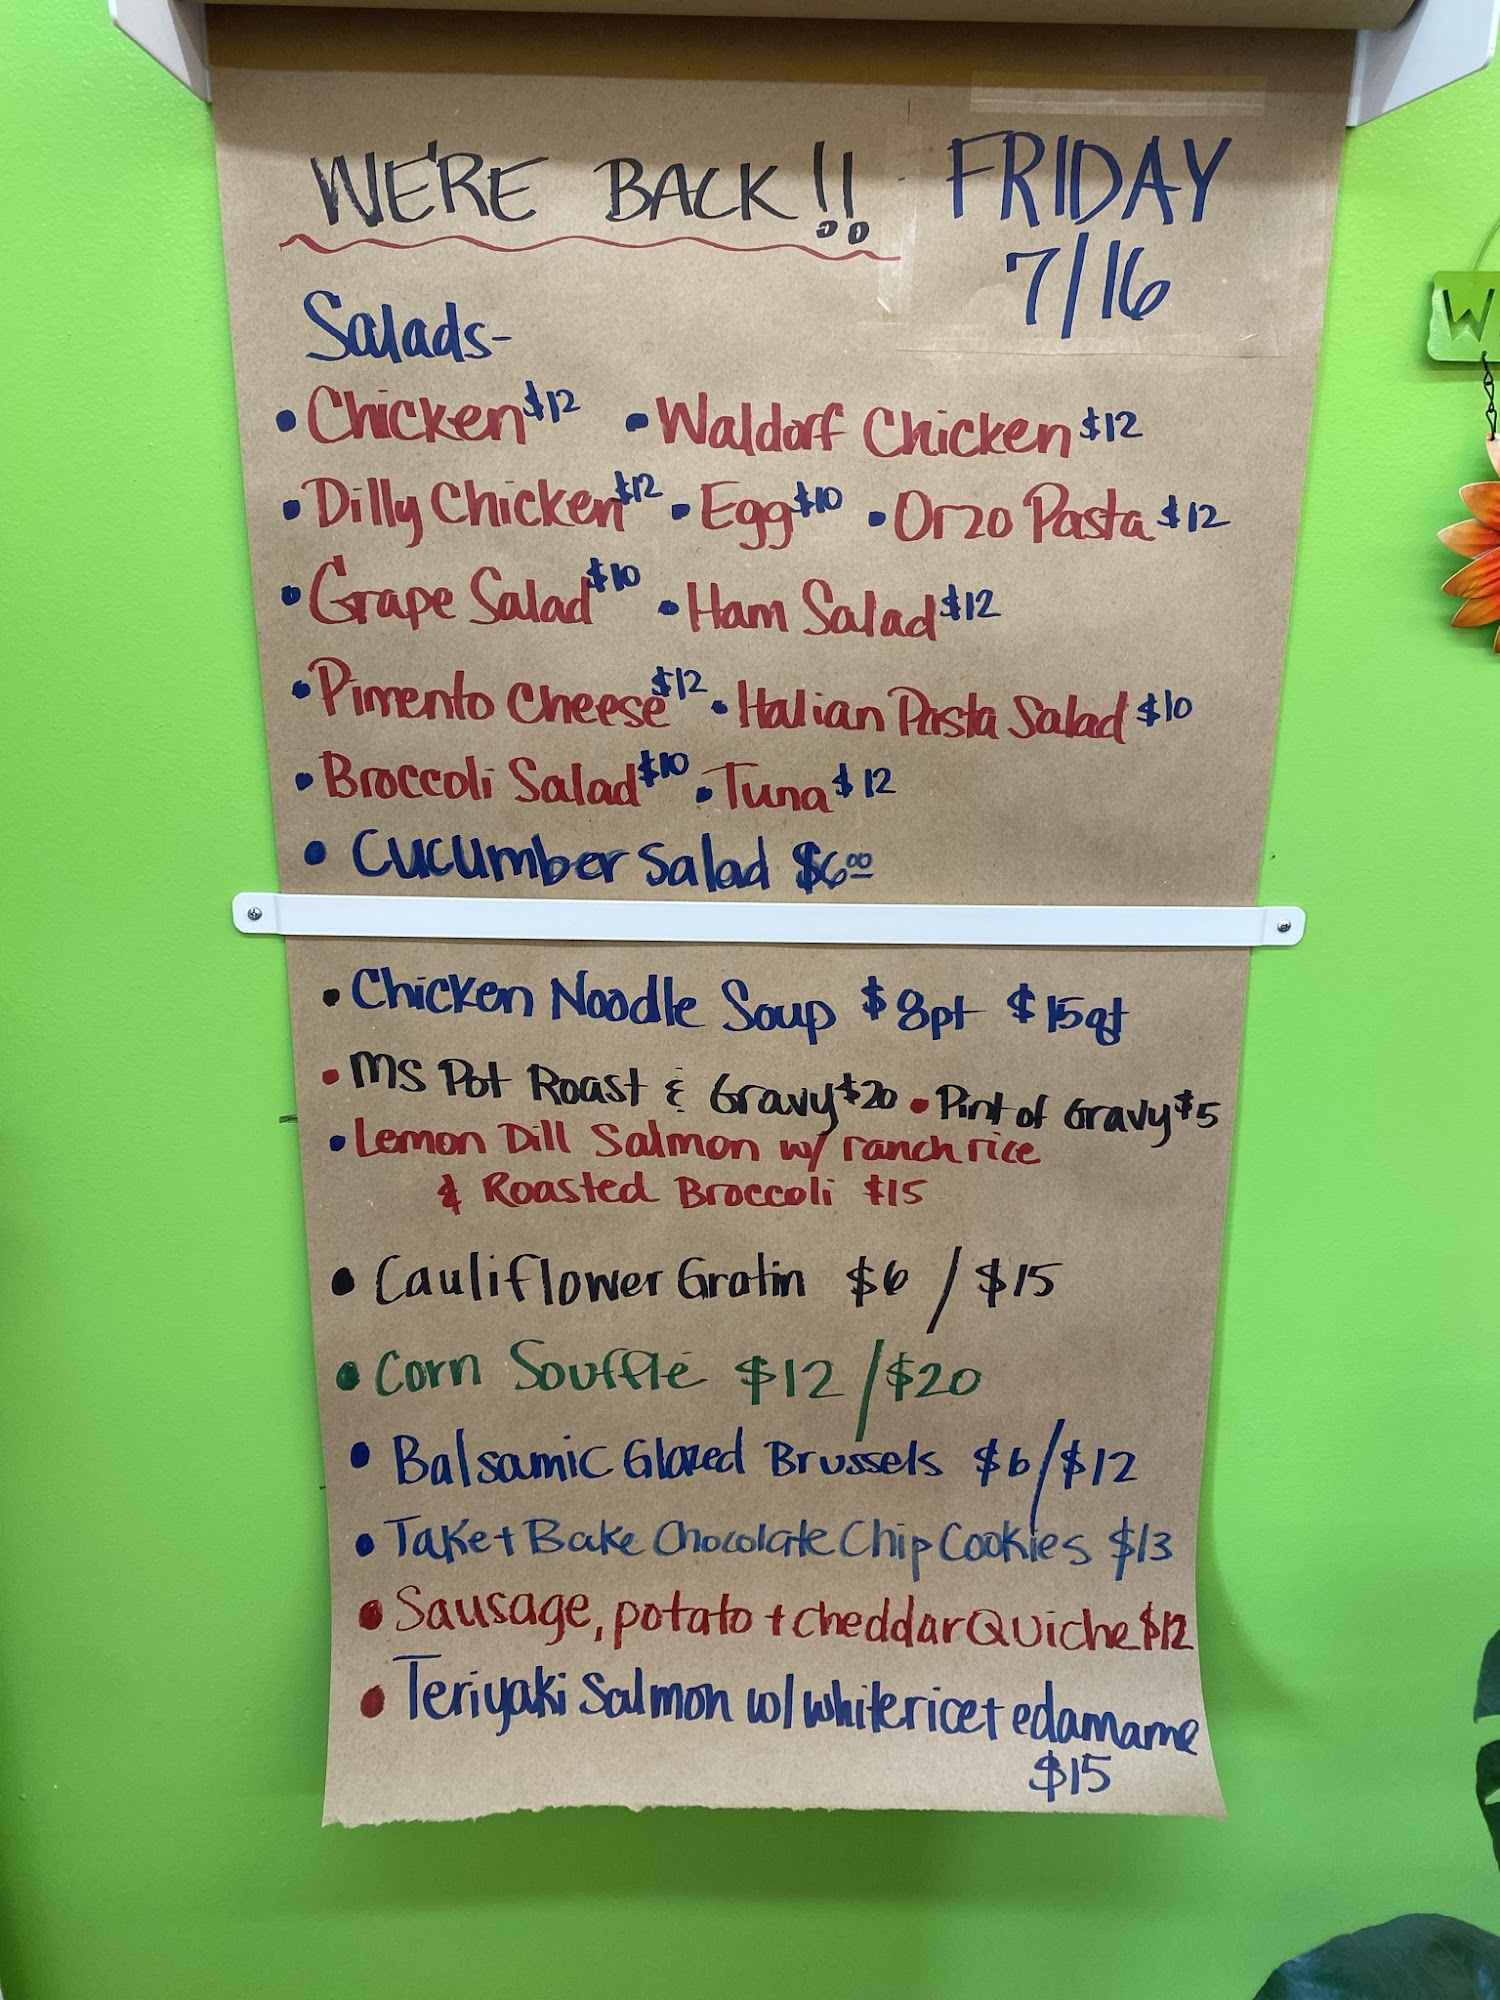 WE'RE BACK!! FRIDAY
7/16
Salads-
• Chicken $12 • Waldorf Chicken $12
• Dilly Chicken $12 • Egg $10 • Orzo Pasta $12
• Grape Salad $10 • Ham Salad $12
• Pimento Cheese $12 • Italian Pasta Salad $10
• Broccoli Salad $10 • Tuna $12
• Cucumber Salad $6.00
• Chicken Noodle Soup $8pt $15qt
• MS Pot Roast & Gravy $20 • Pint of Gravy $5
• Lemon Dill Salmon w/ ranch rice
& Roasted Broccoli $15
• Cauliflower Gratin $6/$15
• Corn Soufflé $12/$20
• Balsamic Glazed Brussels $6/$12
• Take + Bake Chocolate Chip Cookies $13
• Sausage, potato + cheddar Quiche $12
• Teriyaki Salmon w/ white rice + edamame
$15
W